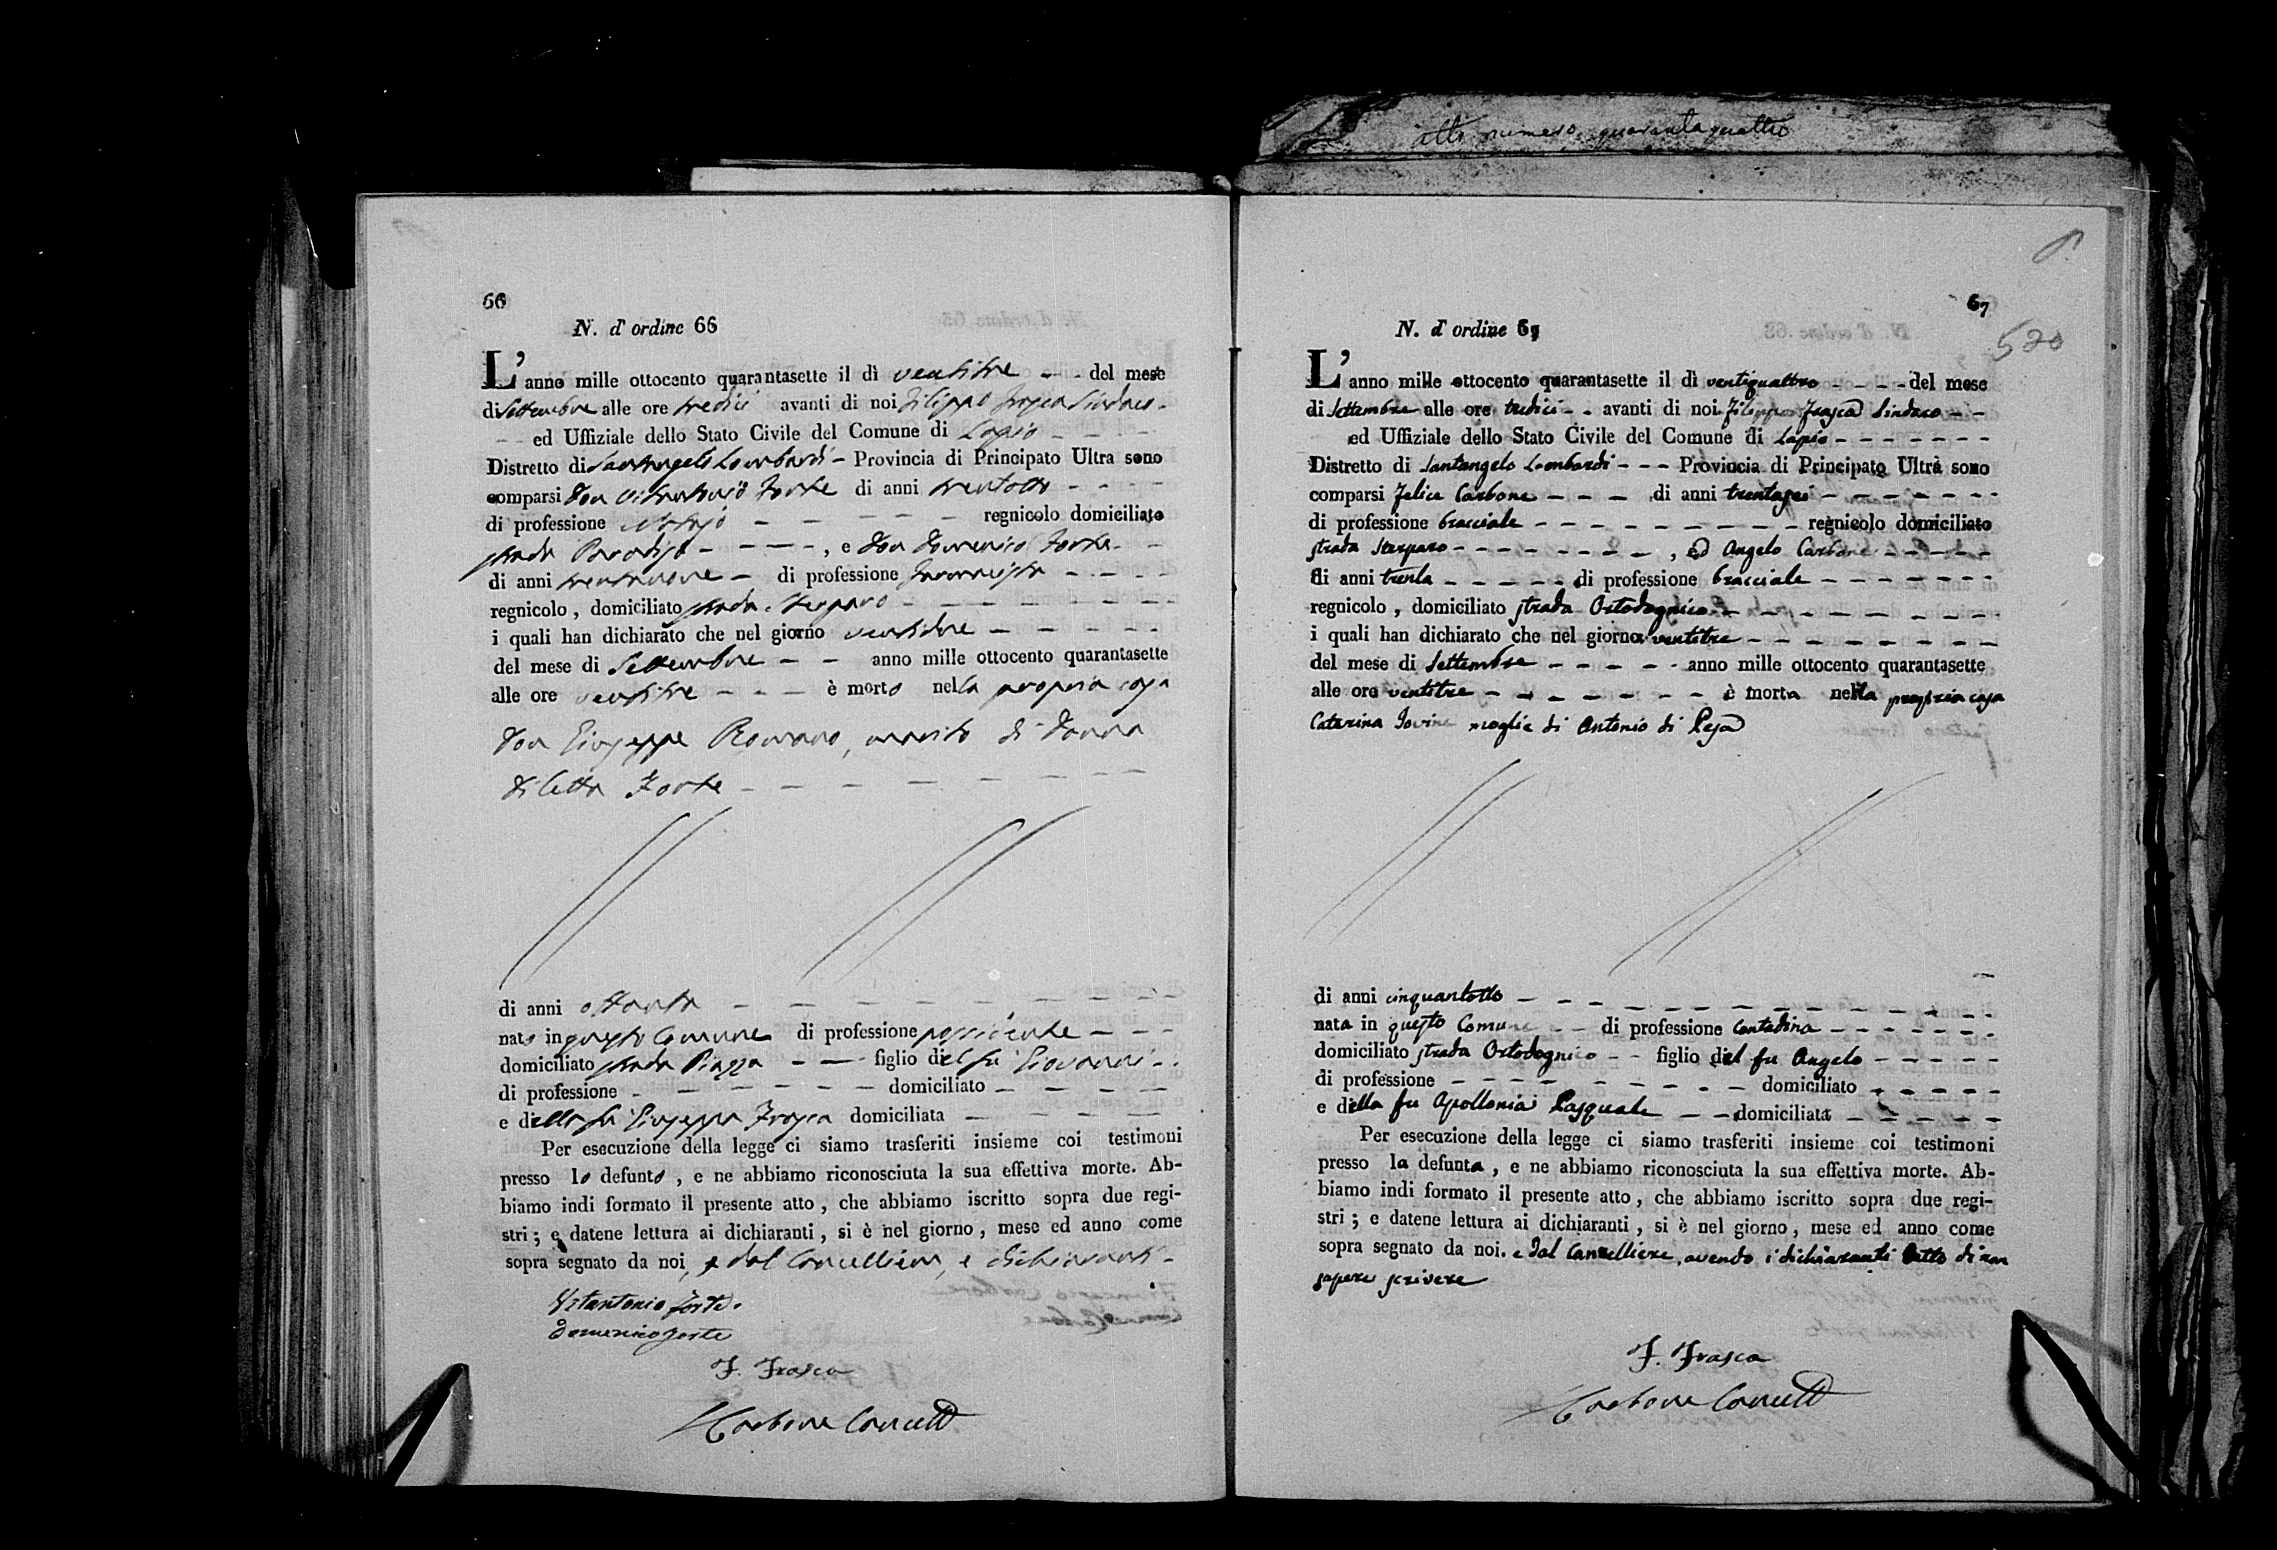 atto numero quarantaquattro
66
N. d' ordine 66
L' anno mille ottocento quarantasette il dì ventitre - - del mese
di Settembre alle ore tredici avanti di noi Filippo Frasca Sindaco -
- - ed Uffiziale dello Stato Civile del Comune di Lapio - - - -
Distretto di Santangelo Lombardi - Provincia di Principato Ultra sono
comparsi Don Vitantonio Forte di anni trentotto - - - -
di professione - - - - - regnicolo domiciliato
strada Paradiso - - - - , e Don Domenico Forte - -
di anni trentanove - di professione - - - -
regnicolo , domiciliato strada Sterparo - - - - - - - -
i quali han dichiarato che nel giorno ventidue - - - - -
del mese di Settembre - - anno mille ottocento quarantasette
alle ore ventitre - - - è morto nella propria casa
Don Giuseppe Romano, marito di Donna
Diletta Forte - - - - - - - - -
di anni ottanta - - - - - - - - - -
nato in questo Comune di professione possidente - - -
domiciliato strada Piazza - - figlio del fu Giovanni - -
di professione - - - - - - domiciliato - - - - -
e della fu Giuseppa Frasca domiciliata - - - - -
Per esecuzione della legge ci siamo trasferiti insieme coi testimoni
presso lo defunto , e ne abbiamo riconosciuta la sua effettiva morte. Ab-
biamo indi formato il presente atto , che abbiamo iscritto sopra due regi-
stri ; e datene lettura ai dichiaranti , si è nel giorno , mese ed anno come
sopra segnato da noi, e dal Cancelliere, e dichiaranti -
Vitantonio Forte.
Domenico Forte
F. Frasca
Carbone Cancell
67
520
N. d' ordine 67
L' anno mille ottocento quarantasette il dì ventiquattro - - - - del mese
di Settembre alle ore tredici - - avanti di noi Filippo Frasca Sindaco - -
ed Uffiziale dello Stato Civile del Comune di Lapio - - - - - - -
Distretto di Santangelo Lombardi - - - Provincia di Principato Ultra sono
comparsi Felice Carbone - - - di anni trentasei - - - - - - -
di professione bracciale - - - - - - - - - regnicolo domiciliato
strada Sterparo - - - - - - - - , ed Angelo Carbone - - - - -
di anni trenta - - - - - di professione bracciale - - - - - - -
regnicolo , domiciliato strada Ortodognico - - - - - - - - -
i quali han dichiarato che nel giorno ventitre - - - - - - - -
del mese di Settembre - - - - - anno mille ottocento quarantasette
alle ore ventitre - - - - - - - è morta nella propria casa
Catarina Iovine moglie di Antonio di Pesa
di anni cinquantotto - - - - - - - - - - - - -
nata in questo Comune - - di professione Contadina - - - - - - -
domiciliato strada Ortodognico - - figlio del fu Angelo - - - - -
di professione - - - - - - - - - - domiciliato - - - - -
e della fu Apollonia Pasquale - - domiciliata - - - - - -
Per esecuzione della legge ci siamo trasferiti insieme coi testimoni
presso la defunta , e ne abbiamo riconosciuta la sua effettiva morte. Ab-
biamo indi formato il presente atto , che abbiamo iscritto sopra due regi-
stri ; e datene lettura ai dichiaranti , si è nel giorno , mese ed anno come
sopra segnato da noi. e dal Cancelliere, avendo i dichiaranti detto di non
sapere scrivere
F. Frasca
Carbone Cancell